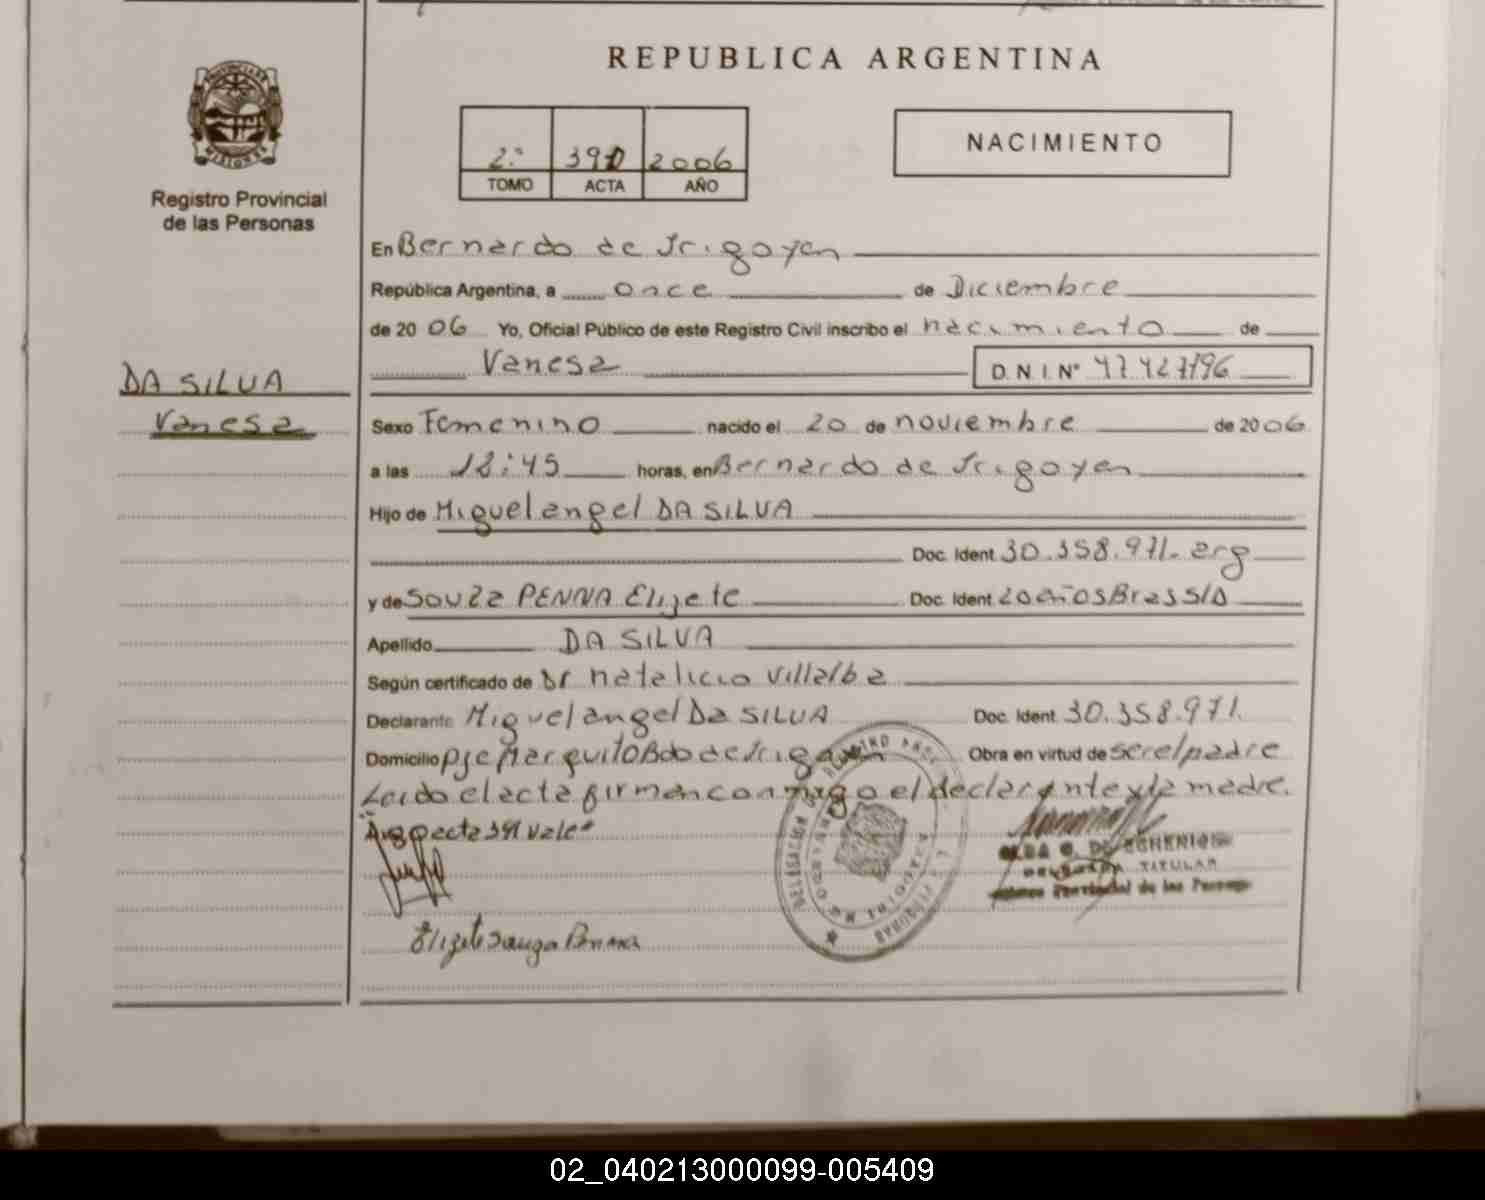 REPUBLICA ARGENTINA
PROVINCIA DE
MISIONES
Registro Provincial
de las Personas
2° 390 2006
TOMO ACTA AÑO
NACIMIENTO
En Bernardo de Irigoyen
República Argentina, a once de Diciembre
de 2006 Yo, Oficial Público de este Registro Civil inscribo el nacimiento de
Vanesa D.N.I. N° 47.427.196
DA SILVA
Vanesa
Sexo Femenino nacido el 20 de noviembre de 2006
a las 12:45 horas, en Bernardo de Irigoyen
Hijo de Miguel angel DA SILVA
Doc. Ident. 30.358.971. arg
y de Souza PENNA Elizete Doc. Ident. 20 años Brassio
Apellido DA SILVA
Según certificado de Dr natalicio Villalba
Declarante Miguel angel Da SILVA Doc. Ident. 30.358.971.
Domicilio Pje Marquito Bdo de Irigoyen Obra en virtud de ser el padre
Leido el acta firman conmigo el declarante y la madre.
acta 391 vale"
Elizete Souza Penna
DELEGACION
TITULAR
Provincial de las Personas
02_040213000099-005409